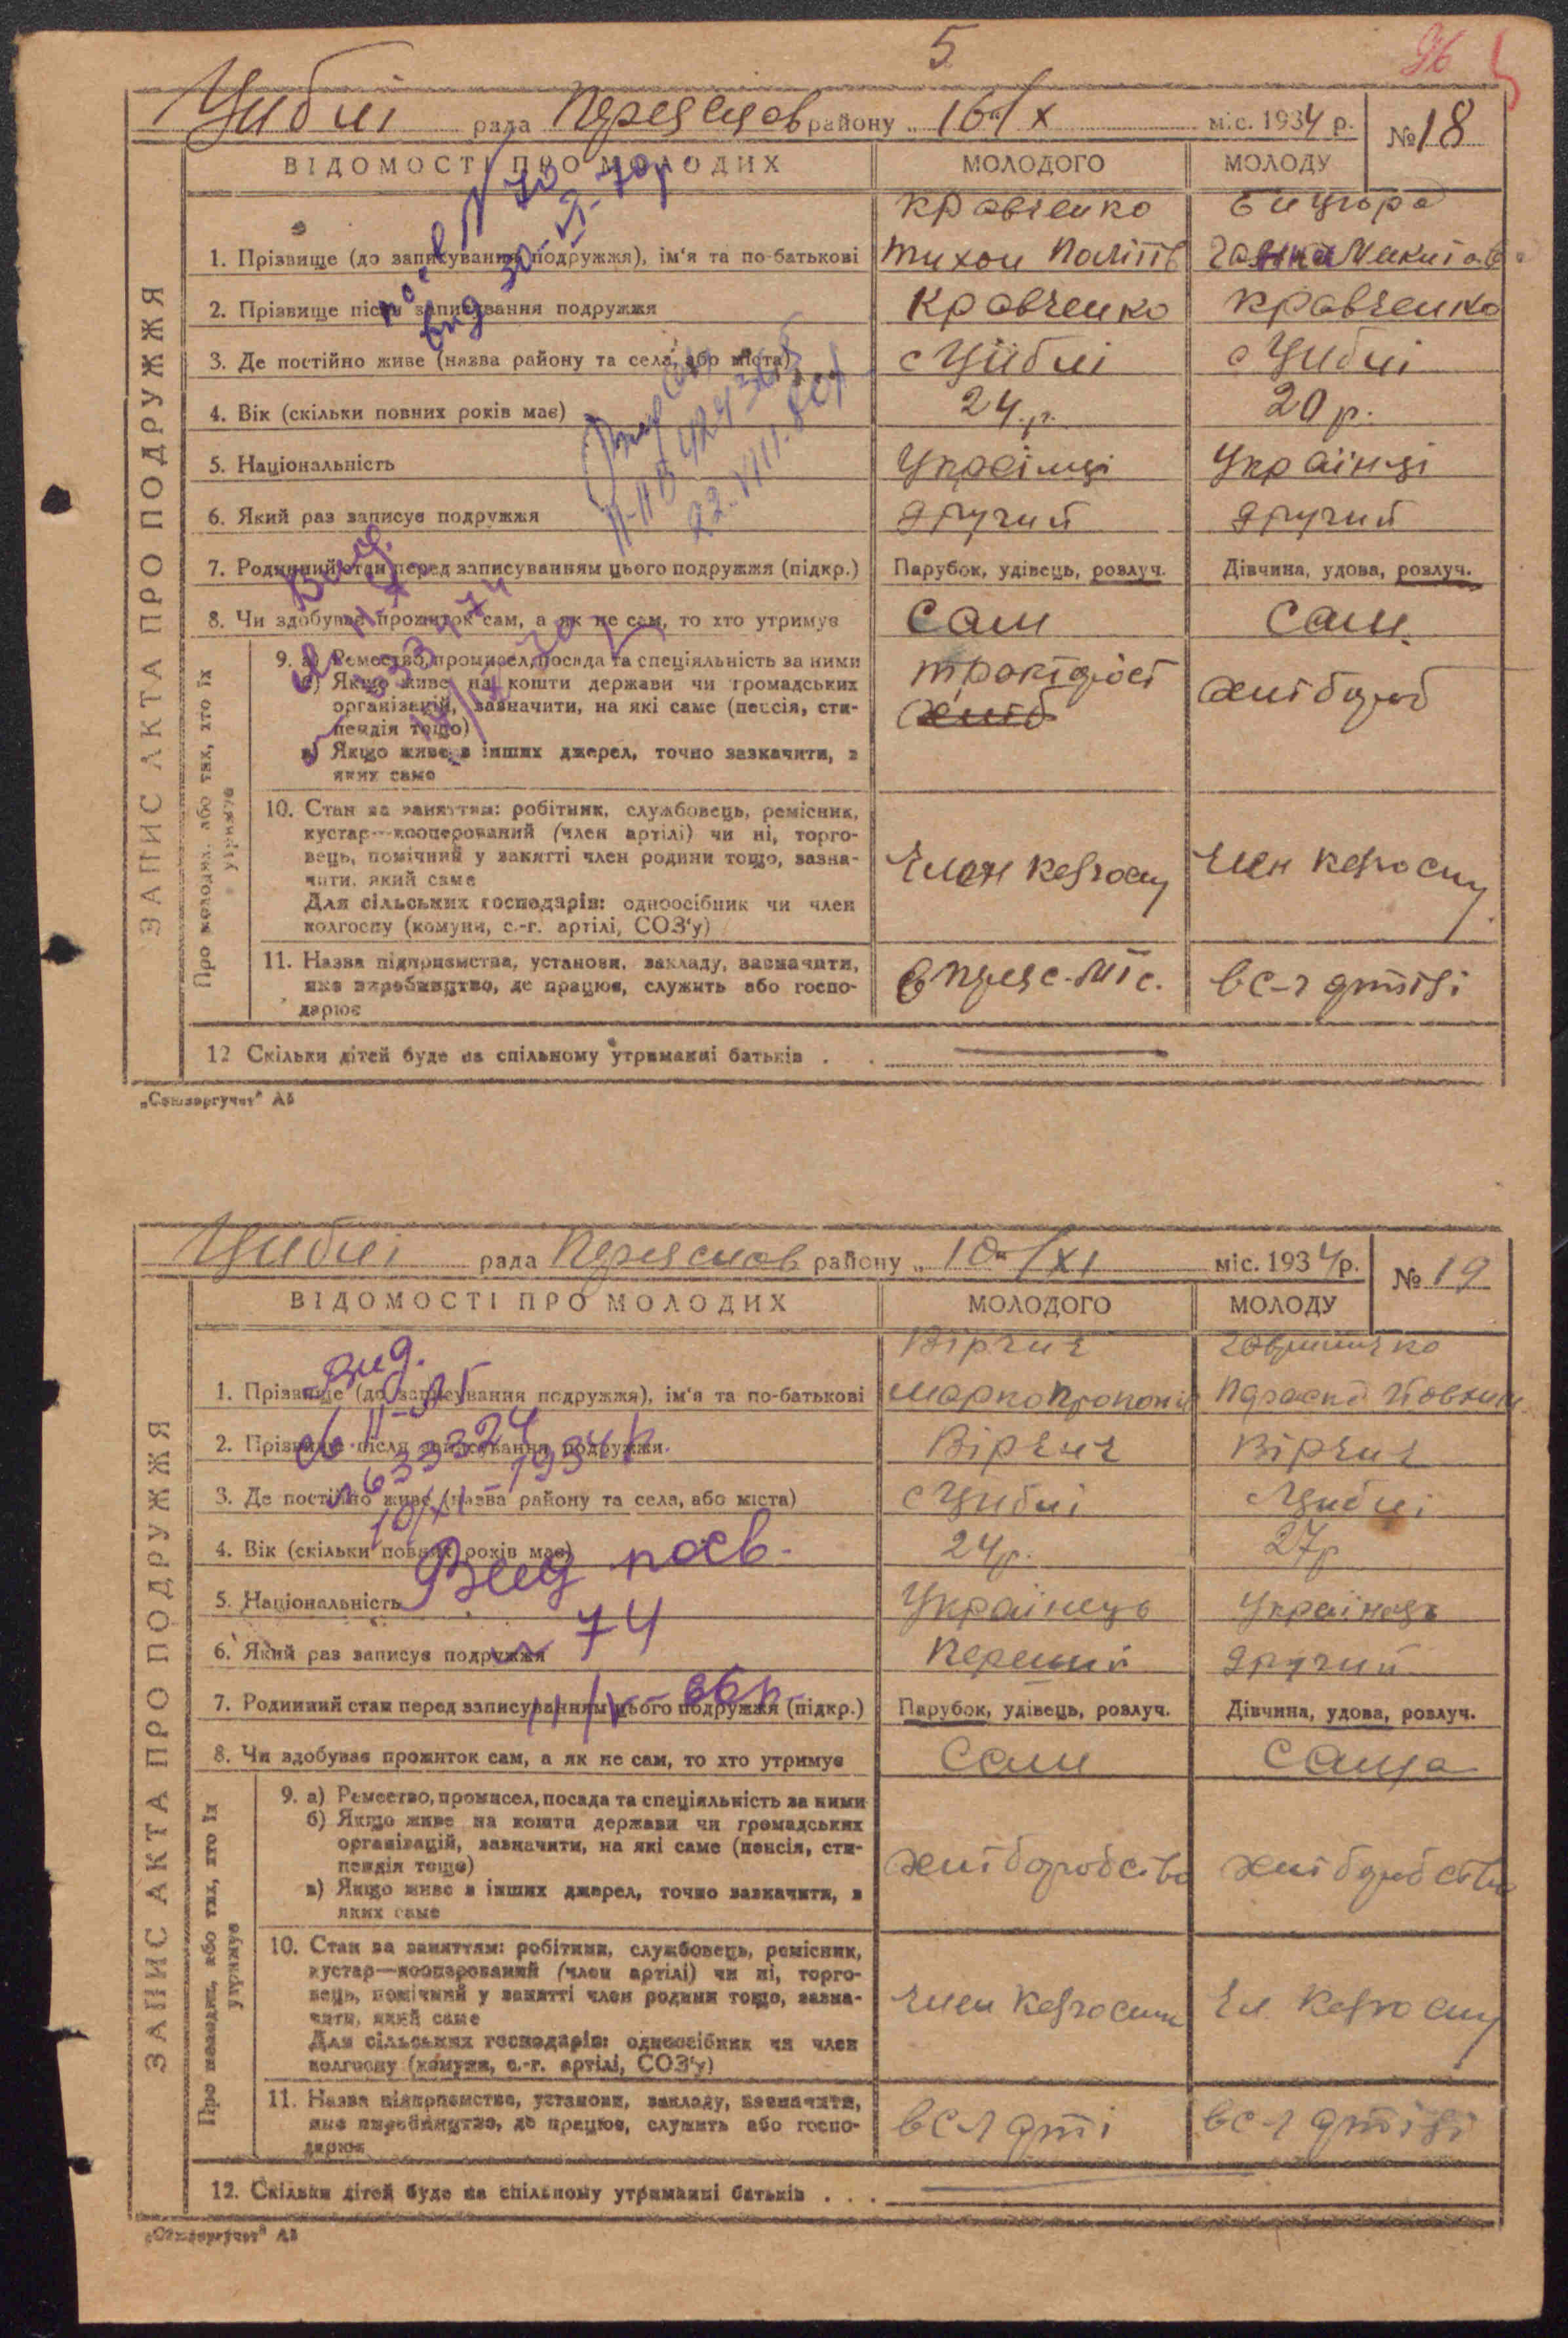 5
96
Циблі рада Переяслов району „16/X міс. 1934 р. №18
ВІДОМОСТІ ПРО МОЛОДИХ МОЛОДОГО МОЛОДУ
ЗАПИС АКТА ПРО ПОДРУЖЖЯ
Кравченко
1. Прізвище (до записування подружжя), ім'я та по-батькові Тихон Ганна Микитов
2. Прізвище після записування подружжя Кравченко Кравченко
3. Де постійно живе (назва району та села, або міста) с Циблі с Циблі
4. Вік (скільки повних років має) 24.р. 20 р.
5. Національність Українці Українці
6. Який раз записує подружжя другий другий
7. Родинний стан перед записуванням цього подружжя (підкр.) Парубок, удівець, розлуч. Дівчина, удова, розлуч.
8. Чи здобуває прожиток сам, а як не сам, то хто утримує Сам Сам
Про молодих, або тих, хто їх утримує
9. а) Ремество, промисел, посада та спеціяльність за ними
б) Якщо живе на кошти держави чи громадських
організацій, зазначити, на які саме (пенсія, сти-
пендія тощо)
в) Якщо живе з інших джерел, точно зазначити, з
яких саме
10. Стан за заняттям: робітник, службовець, ремісник,
кустар—кооперований (член артілі) чи ні, торго-
вець, помічний у занятті член родини тощо, зазна-
чити, який саме
Для сільських господарів: одноосібник чи член
колгоспу (комуни, с.-г. артілі, СОЗ'у)
член колгоспу член колгоспу
11. Назва підприємства, установи, закладу, зазначити,
яке виробництво, де працює, служить або госпо-
дарює
в с-г артілі
12 Скільки дітей буде на спільному утриманні батьків . .
„Союзоргучет" А5
Циблі рада Переяслов району „10/XI міс. 1934 р. № 19
ВІДОМОСТІ ПРО МОЛОДИХ МОЛОДОГО МОЛОДУ
ЗАПИС АКТА ПРО ПОДРУЖЖЯ
Вірчич
1. Прізвище (до записування подружжя), ім'я та по-батькові Марко Прокопів Параска Йовхим
2. Прізвище після записування подружжя Вірчич Вірчич
3. Де постійно живе (назва району та села, або міста) с Циблі с Циблі
4. Вік (скільки повних років має) 24р. 27р
Вид посв.
5. Національність Українець Українець
74
6. Який раз записує подружжя Перший другий
7. Родинний стан перед записуванням цього подружжя (підкр.) Парубок, удівець, розлуч. Дівчина, удова, розлуч.
8. Чи здобуває прожиток сам, а як не сам, то хто утримує Сам Сама
Про молодих, або тих, хто їх утримує
9. а) Ремество, промисел, посада та спеціяльність за ними
б) Якщо живе на кошти держави чи громадських
організацій, зазначити, на які саме (пенсія, сти-
пендія тощо)
в) Якщо живе з інших джерел, точно зазначити, з
яких саме
хліборобство хліборобство
10. Стан за заняттям: робітник, службовець, ремісник,
кустар—кооперований (член артілі) чи ні, торго-
вець, помічний у занятті член родини тощо, зазна-
чити, який саме
Для сільських господарів: одноосібник чи член
колгоспу (комуни, с.-г. артілі, СОЗ'у)
член колгоспу чл. колгоспу
11. Назва підприємства, установи, закладу, зазначити,
яке виробництво, де працює, служить або госпо-
дарює
в с-г арті в с-г артілі
12. Скільки дітей буде на спільному утриманні батьків . . .
„Союзоргучет" А5